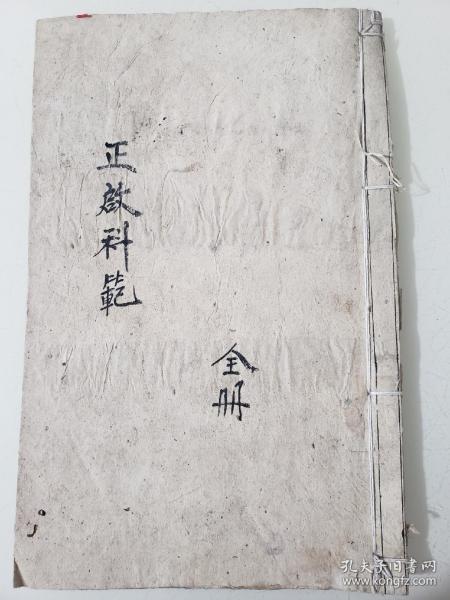 正啟科範
全册
孔夫子旧书网
www.kongfz.com